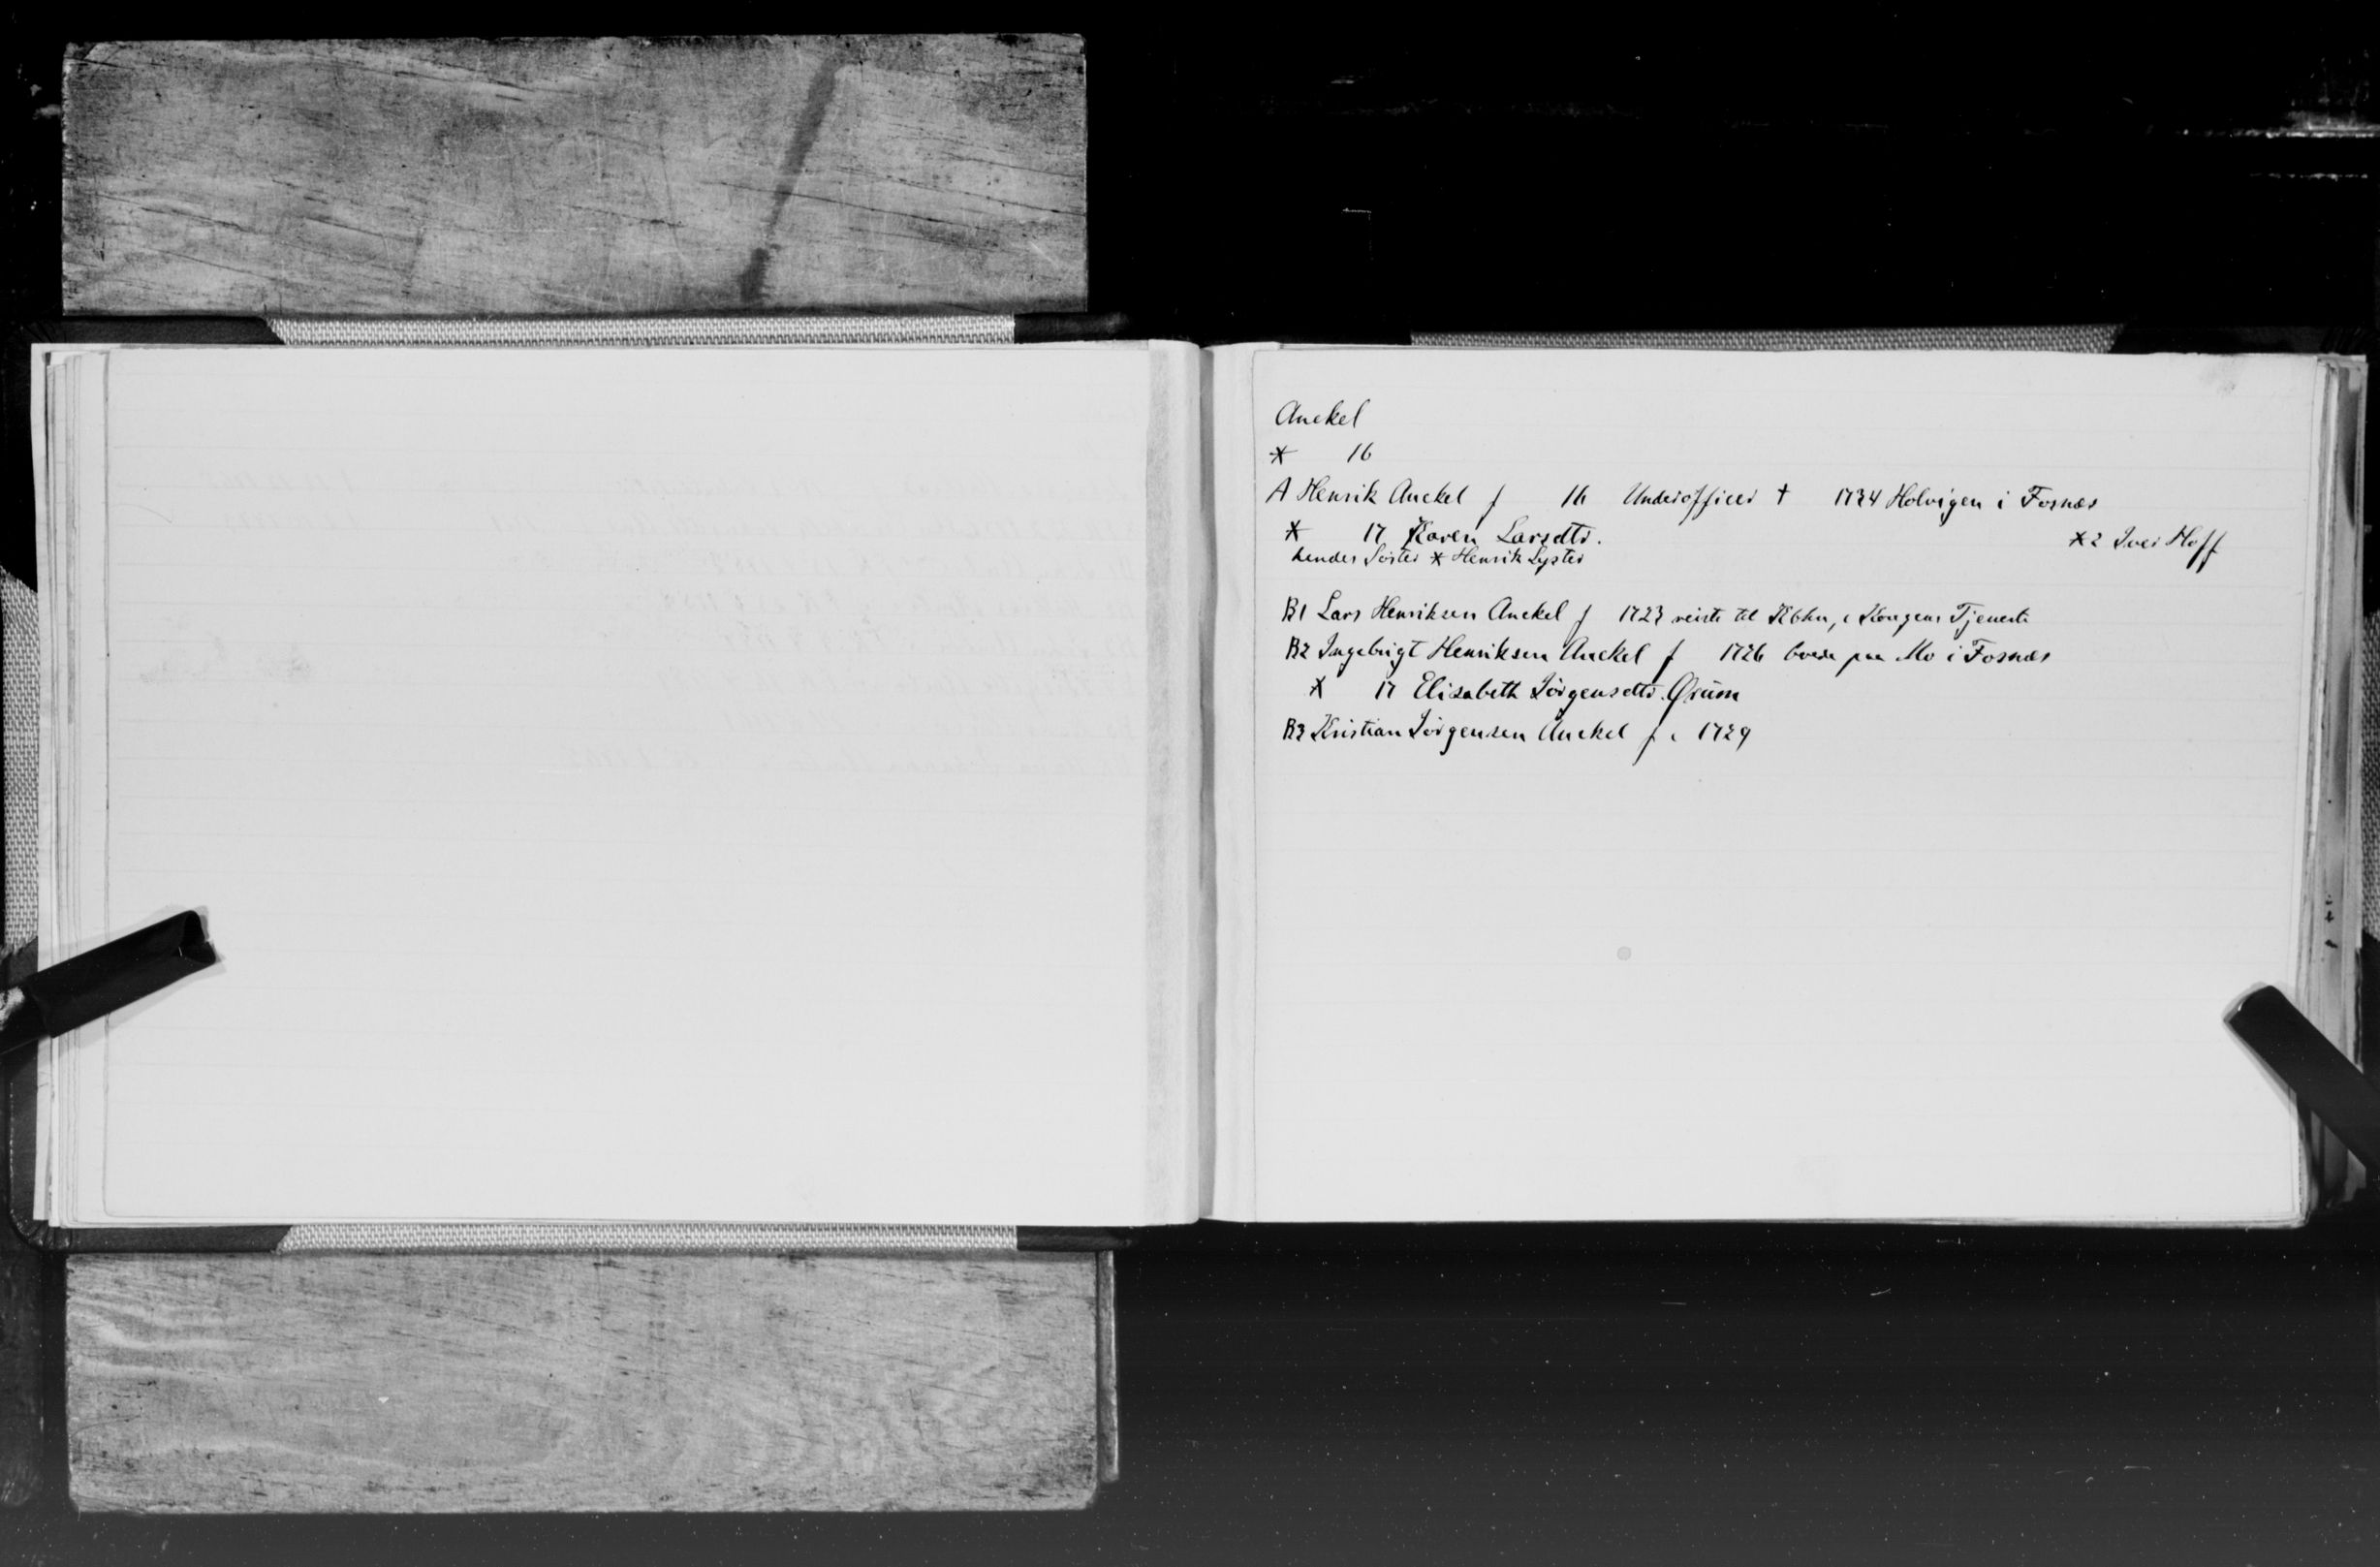 Anckel
* 16
A Henrik Anckel f 16 Underofficer † 1734 Holvigen i Fosnæs
* 17 Karen Larsdtr. *2 Iver Hoff
hendes Søster * Henrik Lyster
B1 Lars Henriksen Anckel f 1723 reiste til Kbhn, i Kongens Tjeneste
B2 Ingebrigt Henriksen Anckel f 1726 boede paa Mo i Fosnæs
* 17 Elisabeth Jörgensdtr. Ørum
B3 Kristian Jörgensen Anckel f c 1729